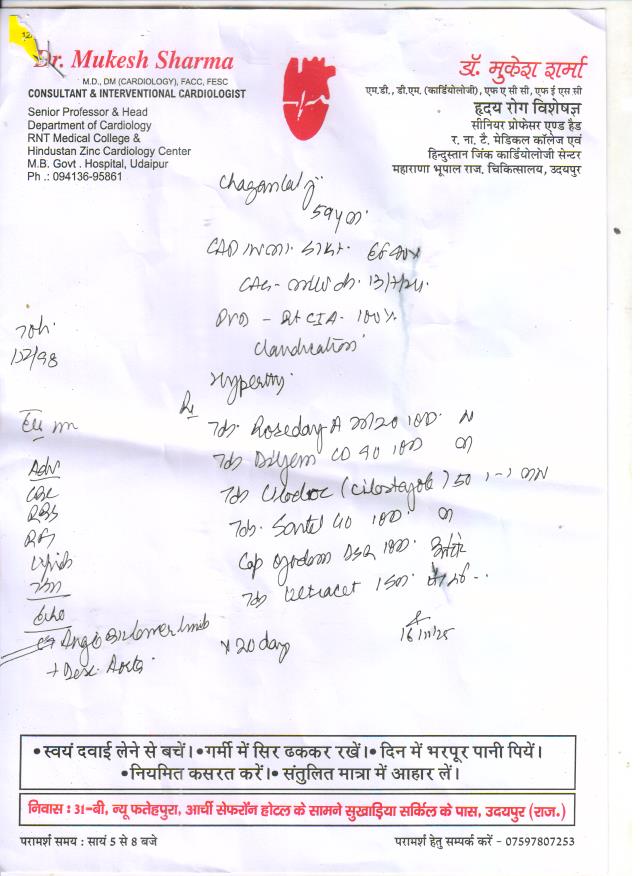 12
Dr. Mukesh Sharma
M.D., DM (CARDIOLOGY), FACC, FESC
CONSULTANT & INTERVENTIONAL CARDIOLOGIST
Senior Professor & Head
Department of Cardiology
RNT Medical College &
Hindustan Zinc Cardiology Center
M.B. Govt . Hospital, Udaipur
Ph .: 094136-95861
डॉ. मुकेश शर्मा
एम.डी., डी.एम. (कार्डियोलॉजी), एफ ए सी सी, एफ ई एस सी
हृदय रोग विशेषज्ञ
सीनियर प्रोफेसर एण्ड हैड
र. ना. टै. मेडिकल कॉलेज एवं
हिन्दुस्तान जिंक कार्डियोलोजी सेन्टर
महाराणा भूपाल राज. चिकित्सालय, उदयपुर
Chaganlal ji
59y
CAD
CAG-
PVD - Rt CIA- 100%
Claudication
70k.
122/98
Rx
Tab. Roseday A 20 1OD N
Tab CD 90 1OD
Tab (Cilostazole) 50 1-1
Tab. 40 1OD
Cap DSR 1OD
Tab Ultracet
Adv
CBC
RBS
RFT
Lipids
Echo
CT Angio Lower limb
+ Desc. Aorta
x 20 day
16/11/25
• स्वयं दवाई लेने से बचें। • गर्मी में सिर ढककर रखें। • दिन में भरपूर पानी पियें।
• नियमित कसरत करें। • संतुलित मात्रा में आहार लें।
निवास : 31-बी, न्यू फतेहपुरा, आर्ची सेफरॉन होटल के सामने सुखाड़िया सर्किल के पास, उदयपुर (राज.)
परामर्श समय : सायं 5 से 8 बजे
परामर्श हेतु सम्पर्क करें - 07597807253